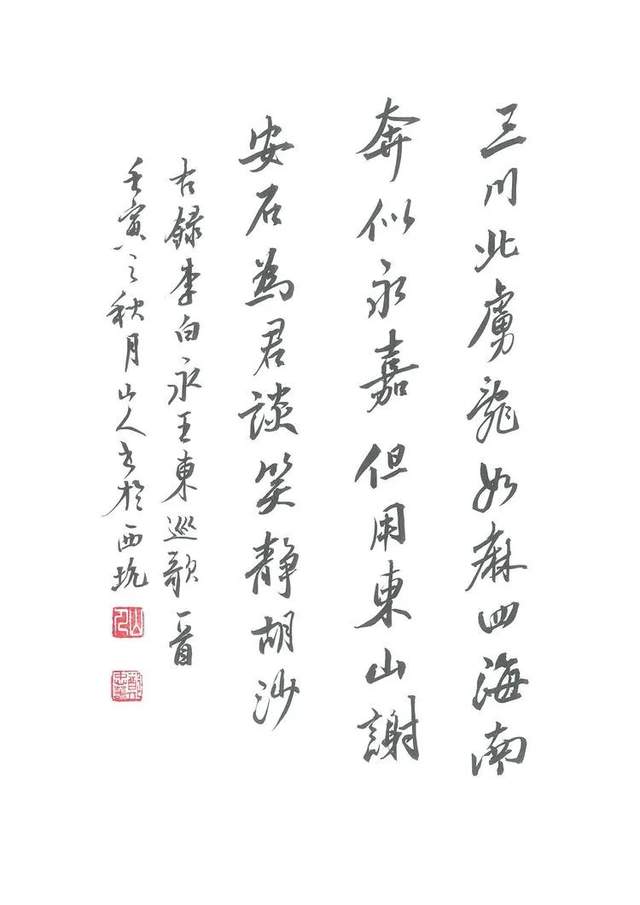 三川北虜亂如麻四海南
奔似永嘉但用東山謝
安石為君談笑靜胡沙
右録李白永王東巡歌一首
壬寅之秋月山人書於西坑